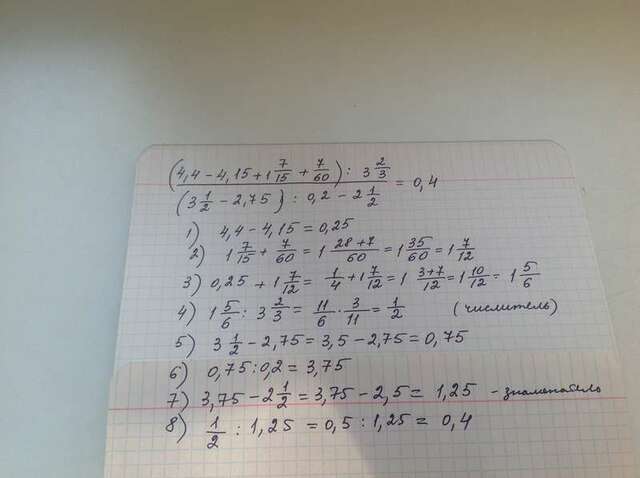 (4,4 - 4,15 + 1 7/15 + 7/60) : 3 2/3
(3 1/2 - 2,75) : 0,2 - 2 1/2 = 0,4
1) 4,4 - 4,15 = 0,25
2) 1 7/15 + 7/60 = 1 28+7/60 = 1 35/60 = 1 7/12
3) 0,25 + 1 7/12 = 1/4 + 1 7/12 = 1 3+7/12 = 1 10/12 = 1 5/6
4) 1 5/6 : 3 2/3 = 11/6 · 3/11 = 1/2 (числитель)
5) 3 1/2 - 2,75 = 3,5 - 2,75 = 0,75
6) 0,75 : 0,2 = 3,75
7) 3,75 - 2 1/2 = 3,75 - 2,5 = 1,25 - знаменатель
8) 1/2 : 1,25 = 0,5 : 1,25 = 0,4